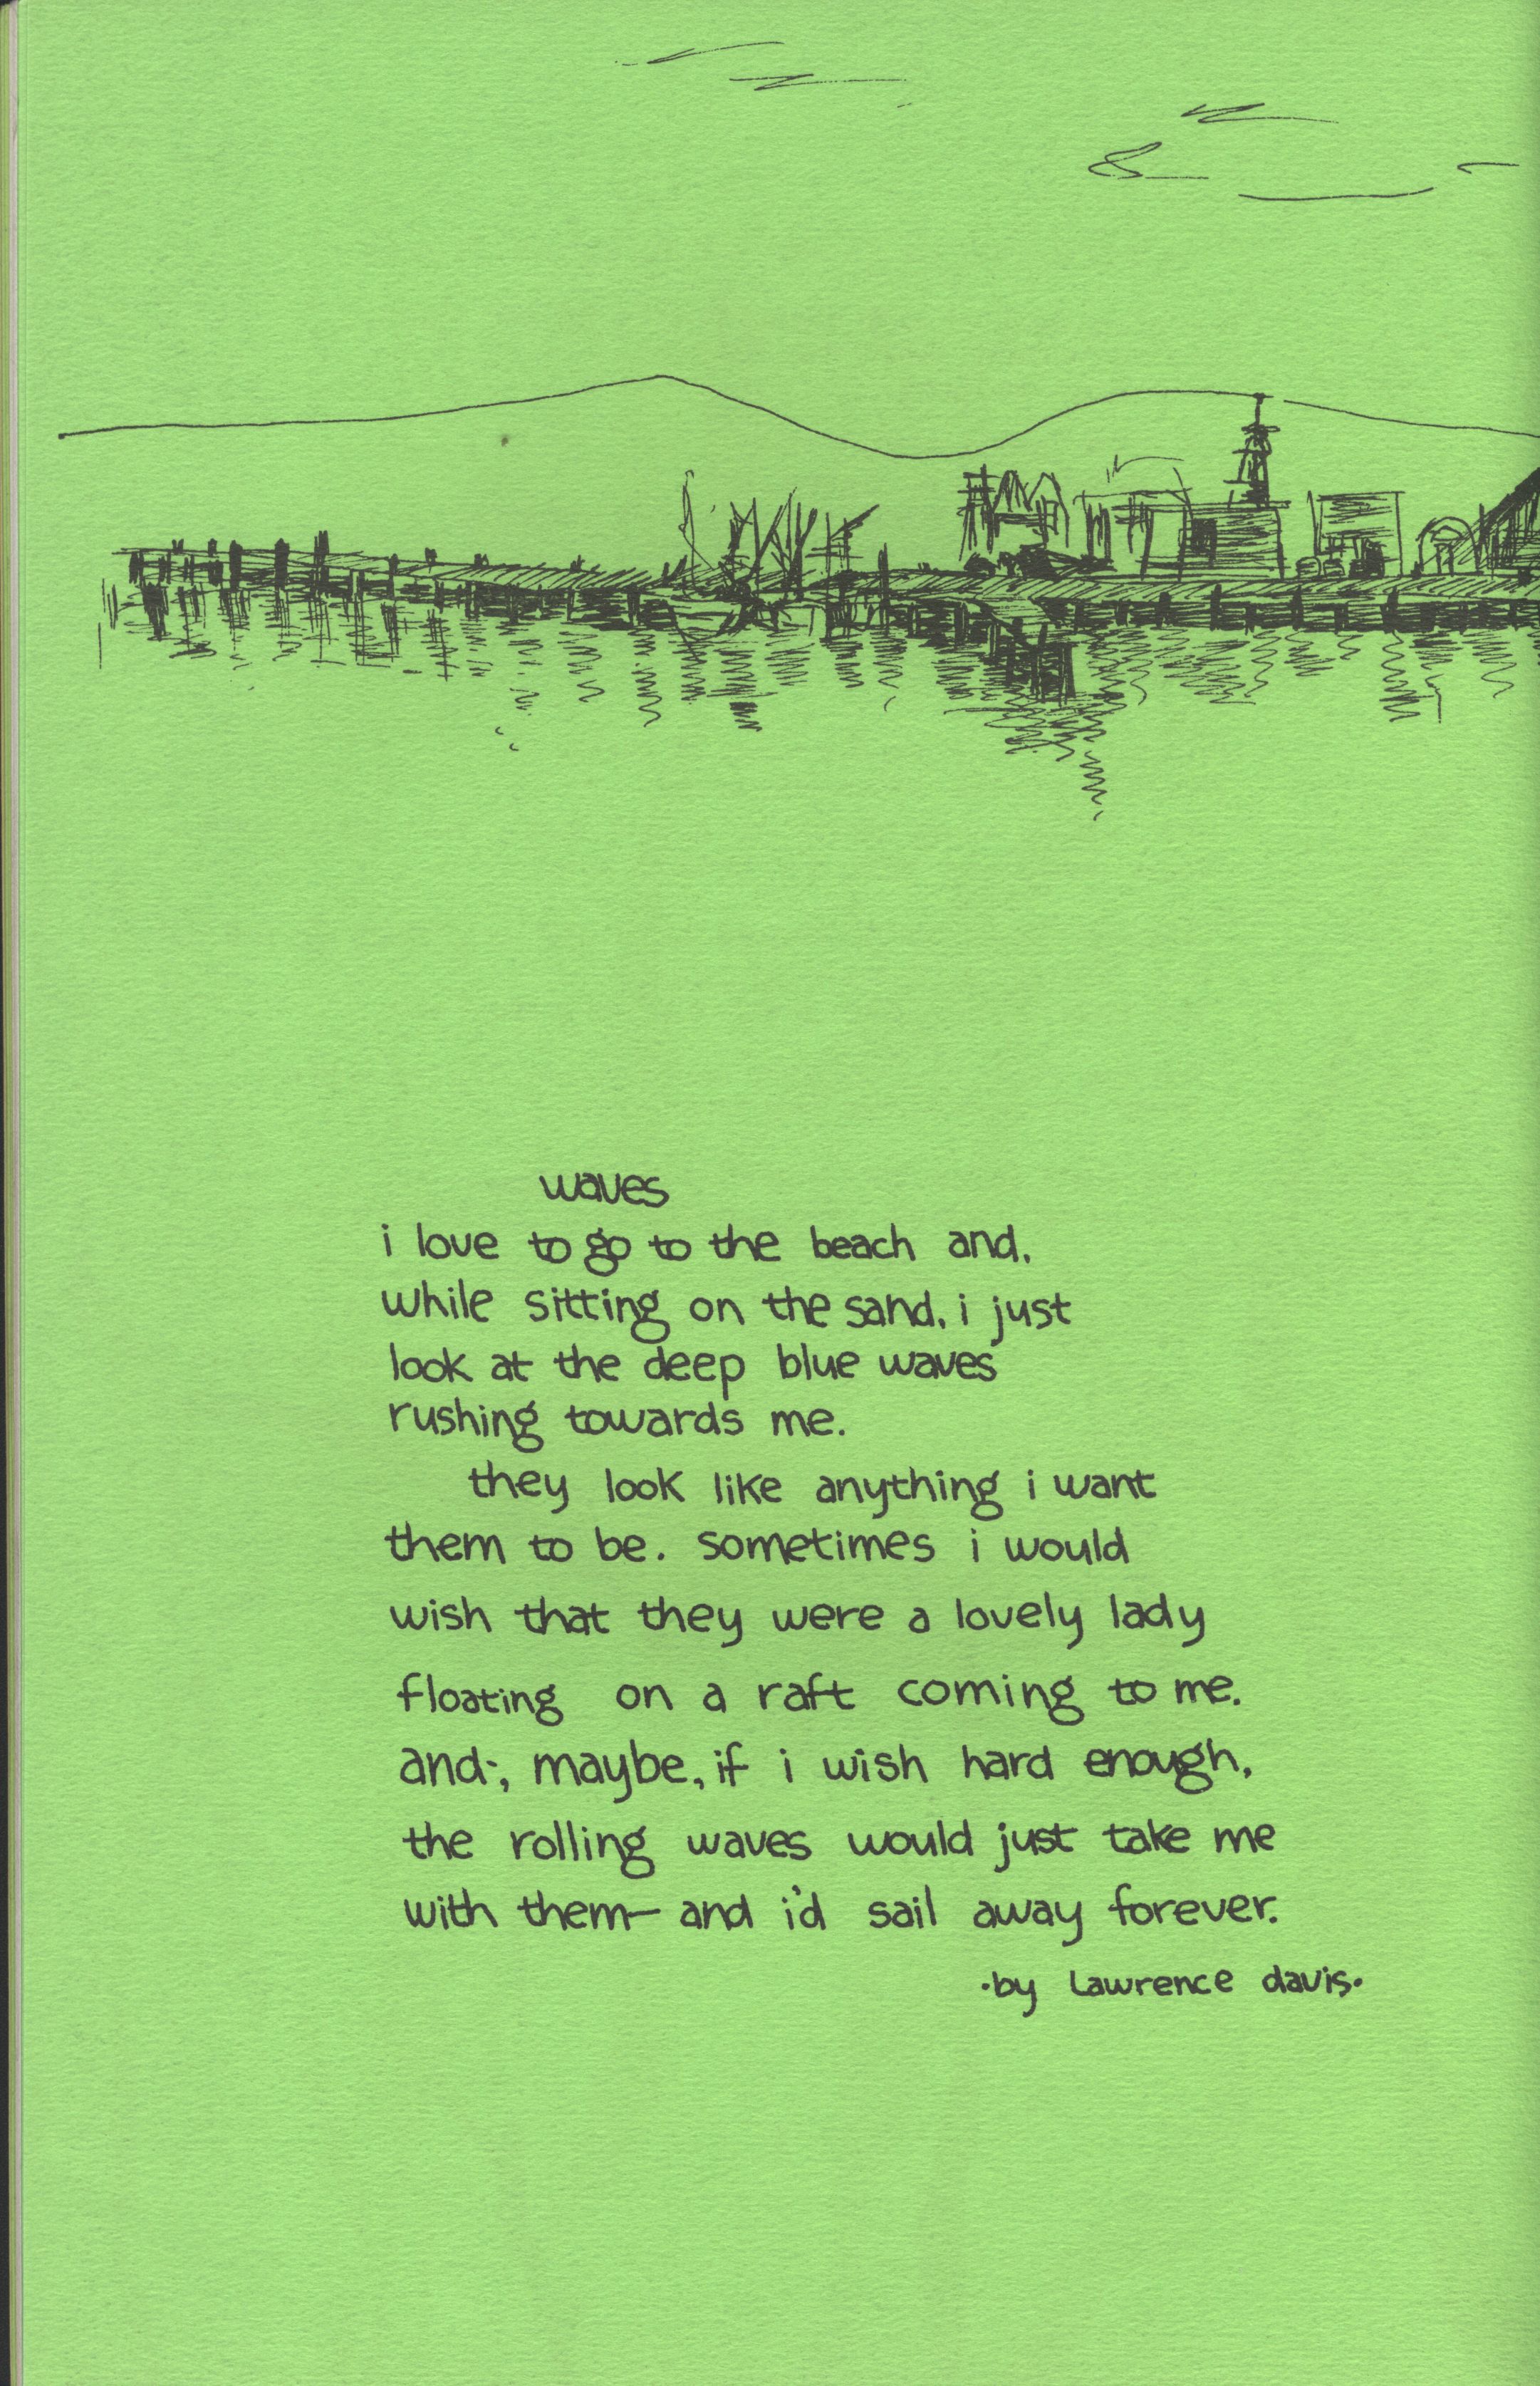 waves
i love to go to the beach and,
while sitting on the sand, i just
look at the deep blue waves
rushing towards me.
they look like anything i want
them to be. sometimes i would
wish that they were a lovely lady
floating on a raft coming to me.
and-, maybe, if i wish hard enough,
the rolling waves would just take me
with them— and i'd sail away forever.
·by Lawrence davis·